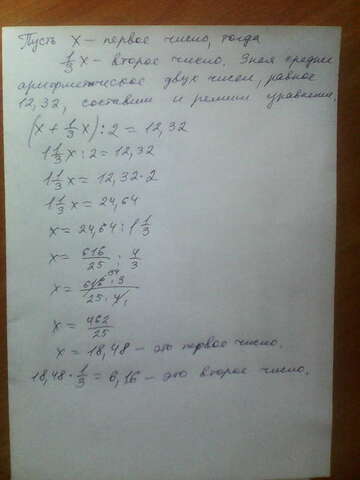 Пусть x – первое число, тогда
1/3 x – второе число. Зная средне
арифметическое двух чисел, равное
12,32, составим и решим уравнение.
(x + 1/3 x) : 2 = 12,32
1 1/3 x : 2 = 12,32
1 1/3 x = 12,32 · 2
1 1/3 x = 24,64
x = 24,64 : 1 1/3
x = 616/25 : 4/3
x = 616 · 3 / 25 · 4
x = 462/25
x = 18,48 – это первое число.
18,48 · 1/3 = 6,16 – это второе число.